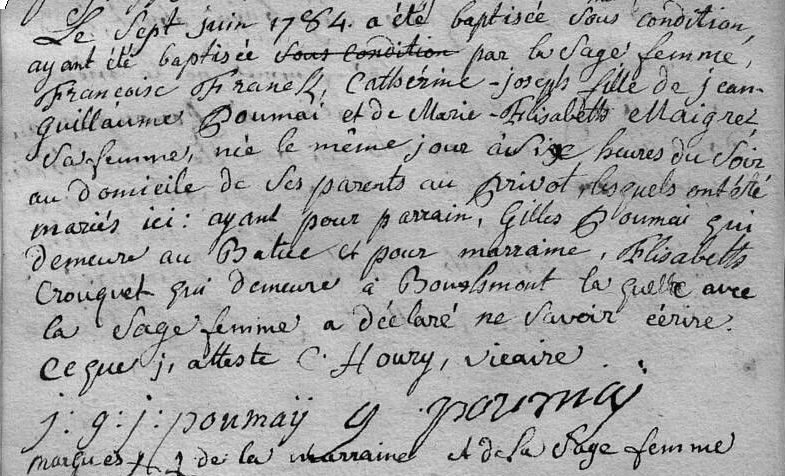 Le Sept juin 1784. a été baptisée sous condition,
ayant été baptisée sous condition par la Sage femme,
Françoise Franck, Catherine-joseph fille de jean-
guillaume Poumai et de Marie-Elisabeth Maigret
Sa femme, née le même jour à Six heures du Soir
au domicile de Ses parents au Privot, lesquels ont été
mariés ici: ayant pour parrain, Gilles Poumai qui
demeure au Batue et pour marraine, Elisabeth
Crouquet qui demeure à la quelle avec
la Sage femme a déclaré ne Savoir écrire.
Ce que j'atteste C. Houry, vicaire
j: g: j: poumaÿ g poumaÿ
marques de la marraine et de la Sage femme